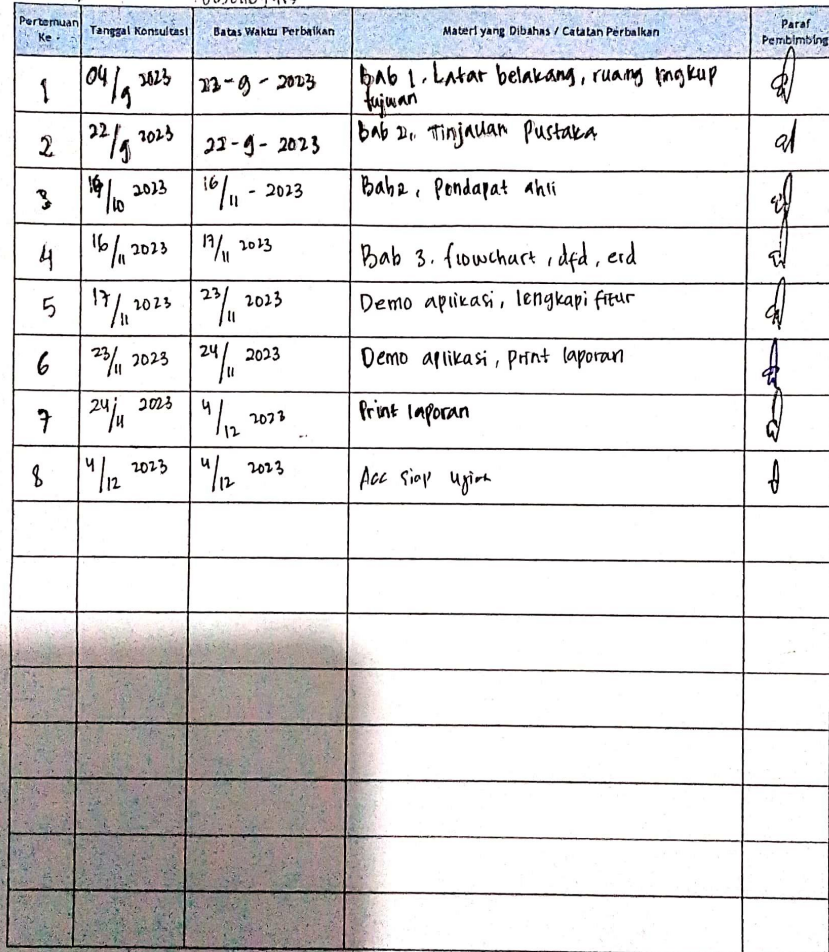 Pertemuan Ke - Tanggal Konsultasi Batas Waktu Perbaikan Materi yang Dibahas / Catatan Perbaikan Paraf Pembimbing
1 04/9 2023 23-9-2023 Bab 1. Latar belakang, ruang lingkup
tujuan
2 22/9 2023 22-9-2023 Bab 2, Tinjauan Pustaka
3 /10 2023 16/11 - 2023 Bab 2, Pendapat ahli
4 16/11 2023 17/11 2023 Bab 3. flowchart, dfd, erd
5 17/11 2023 23/11 2023 Demo aplikasi, lengkapi fitur
6 23/11 2023 24/11 2023 Demo aplikasi, print laporan
7 24/11 2023 4/12 2023 Print laporan
8 4/12 2023 4/12 2023 Acc siap ujian